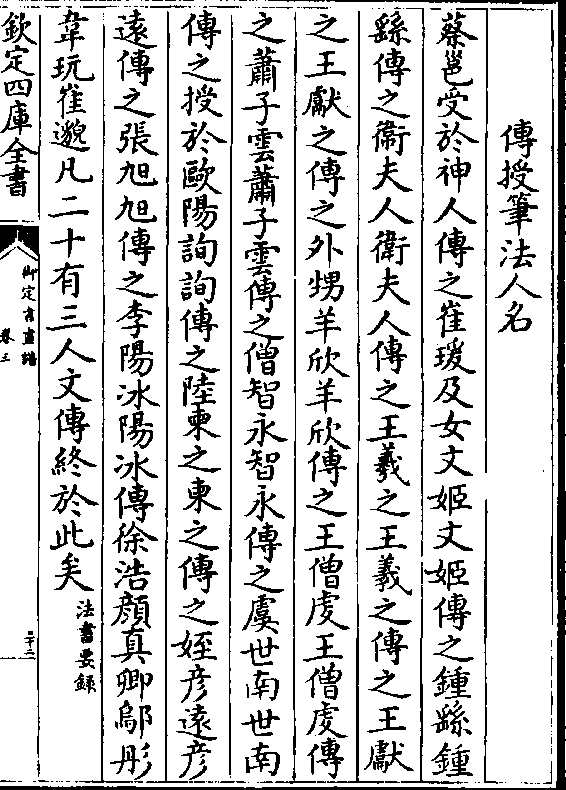 傳授筆法人名
蔡邕受於神人傳之崔瑗及女文姬文姬傳之鍾繇鍾
繇傳之衞夫人衞夫人傳之王羲之王羲之傳之王獻
之王獻之傳之外甥羊欣羊欣傳之王僧虔王僧虔傳
之蕭子雲蕭子雲傳之僧智永智永傳之虞世南世南
傳之授於歐陽詢詢傳之陸柬之柬之傳之姪彦遠彦
遠傳之張旭旭傳之李陽冰陽冰傳徐浩顔真卿鄔彤
韋玩崔邈凡二十有三人文傳終於此矣法書要録
欽定四庫全書
御定書畫譜
卷三
二十二